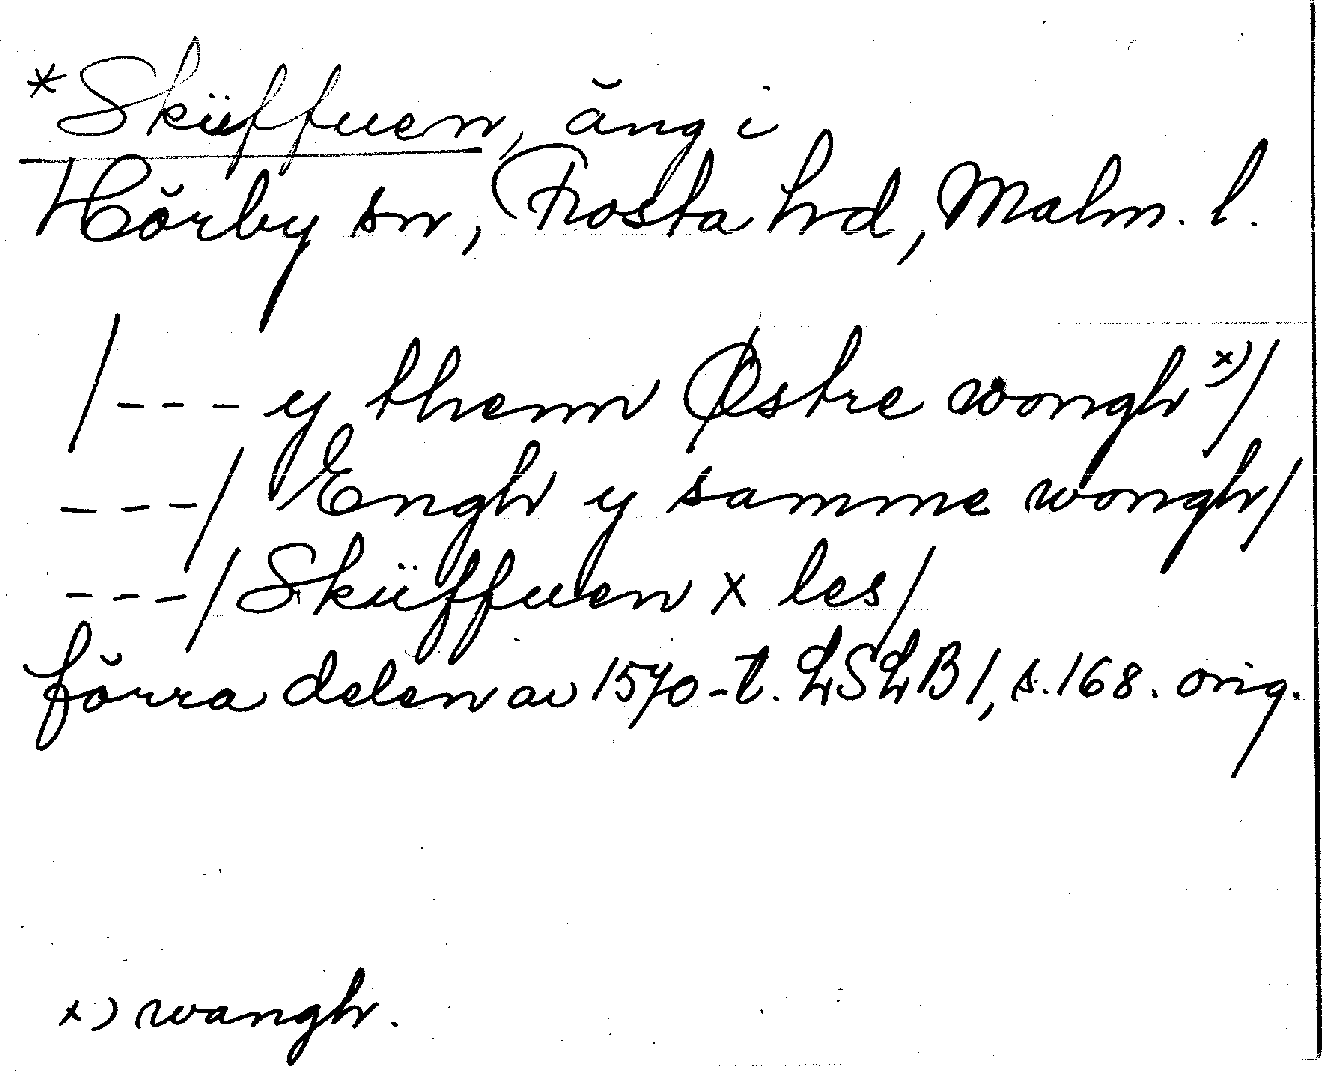 *Sküffuen, äng i
Hörby sn, Frosta hd, Malm. l.
/--- y thenn Østre wongh x)/
---/ Engh y samme wongh/
---/ Sküffuen x les/
förra delen av 1570-t. LSLB 1, s. 168. orig.
x) wangh.